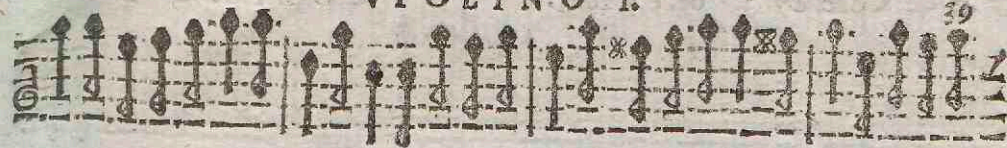 VIOLINO I.
39